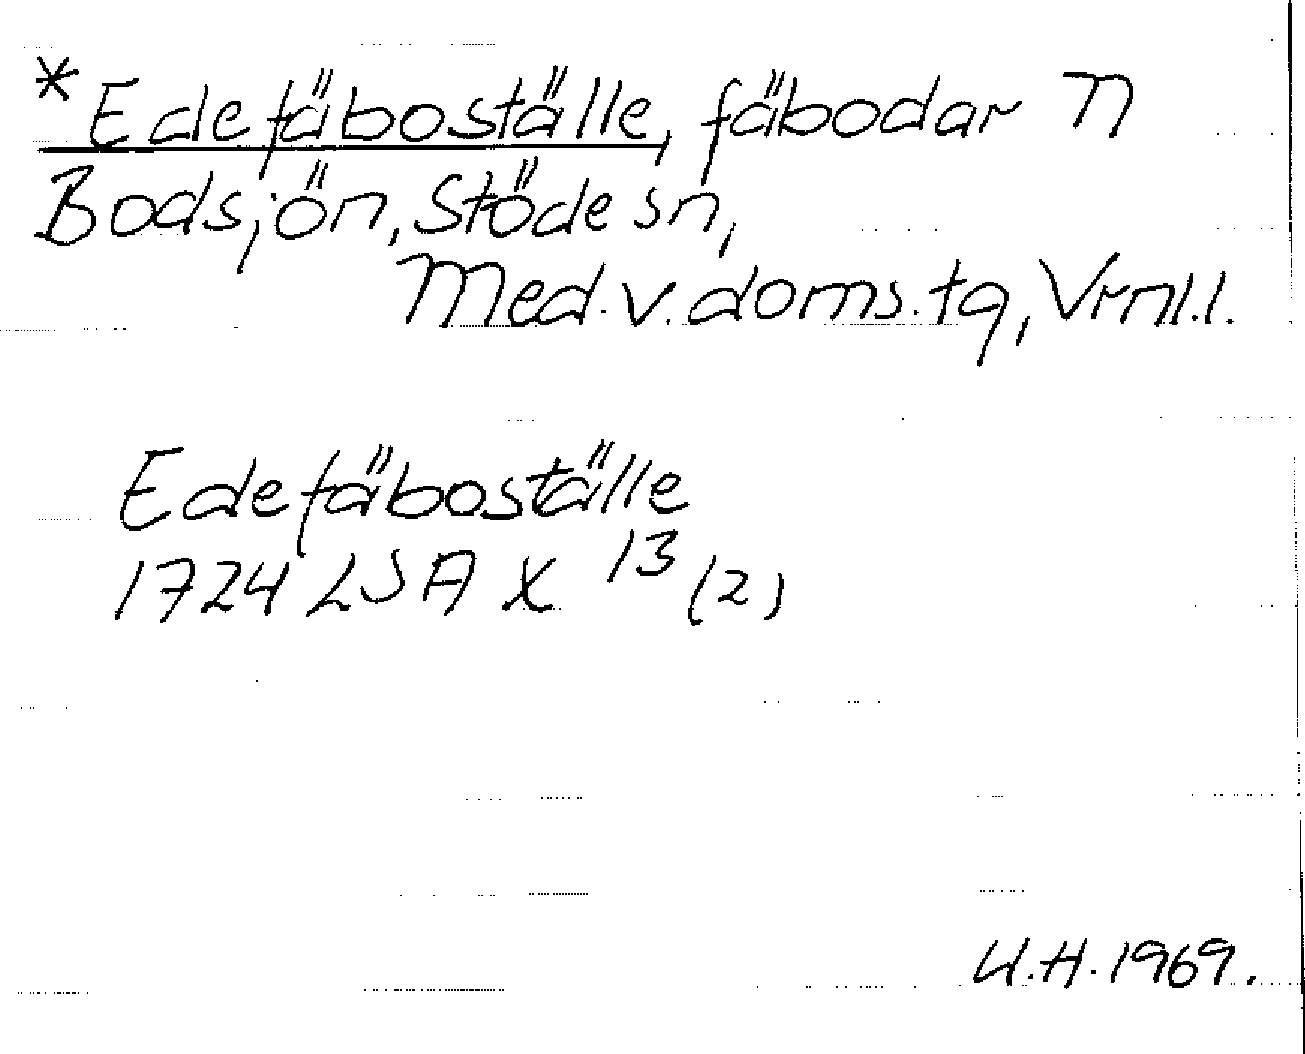 * Edefäboställe, fäbodar N
Bodsjön, Stöde sn,
Med. v. doms. tg, Vrnl.l.
Edefäboställe
1724 LSA X 13 (2)
U.H. 1969.